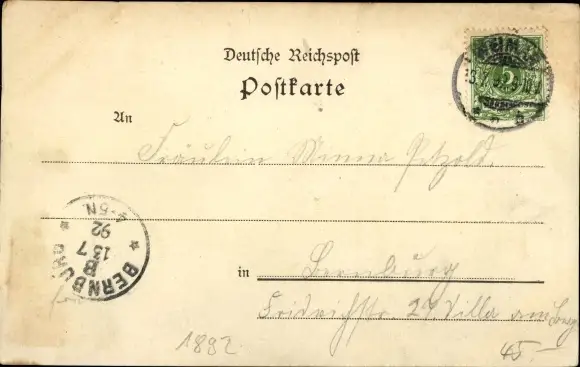 Deutsche Reichspost
Postkarte
An
Fräulein Minna Petzold.
in Bernburg
Friedrichstr. 29 Villa am Berg
BERNBURG
13 7
92
4-5N.
5
1892
45.-